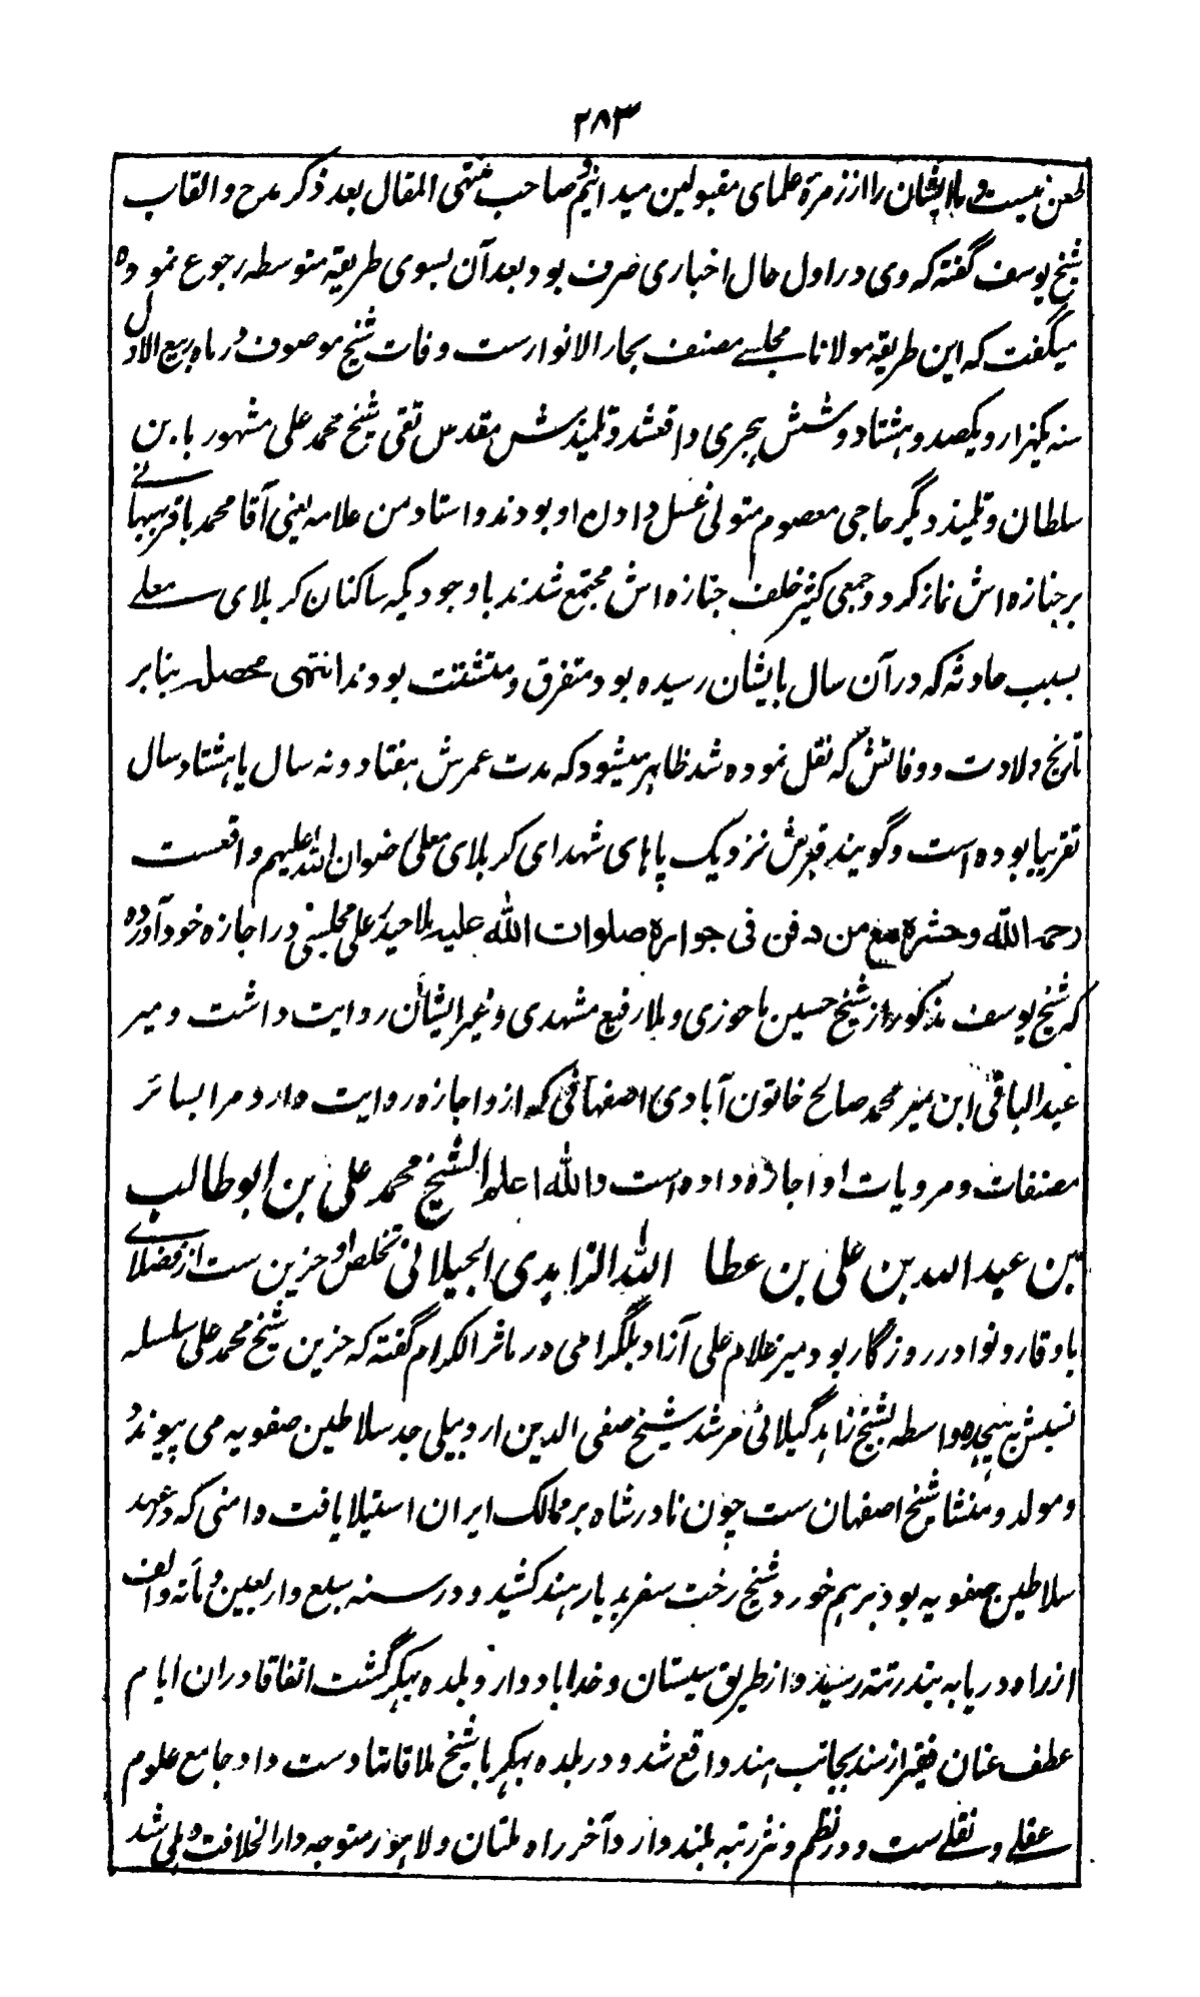 ۲۸۳
طعن نیست و ما ایشان را از زمرهٔ علمای مقبولین میدانیم و صاحب منتهی المقال بعد ذکر مدح و القاب
شیخ یوسف گفته که وی در اول حال اخباری صرف بود بعد آن بسوی طریقهٔ متوسطه رجوع نموده
میگفت که این طریقه مولانا مجلسے مصنف بحار الانوار ست وفات شیخ موصوف در ماه ربیع الاول
سنه یکهزار و یکصد و هشتاد و شش هجری واقعشد و تلمیذش مقدس تقی شیخ محمد علی مشهور بابن
سلطان و تلمیذ دیگر حاجی معصوم متولی غسل دادن او بودند و استاد من علامه یعنی آقا محمد باقر بهبهانے
بر جنازه اش نماز کرد و جمعی کثیر خلف جنازه اش مجتمع شدند با وجودیکه ساکنان کربلای معلے
بسبب حادثه که در آن سال بایشان رسیده بود متفرق و متشتت بودند انتهی محصله بنابر
تاریخ ولادت و وفاتش که نقل نموده شد ظاهر میشود که مدت عمرش هفتاد و نه سال یا هشتاد سال
تقریبا بوده است و گویند قبرش نزدیک پاهای شهدای کربلای معلی رضوان الله علیهم واقعست
رحمه الله وحشره مع من دفن فی جواره صلوات الله علیه ملا حیدر علی مجلسی در اجازه خود آورده
که شیخ یوسف مذکور از شیخ حسین ماحوزی و ملا رفیع مشهدی و غیر ایشان روایت داشت و میر
عبد الباقی ابن میر محمد صالح خاتون آبادی اصفهانی که ازو اجازه روایت دارد مر ابسائر
مصنفات و مرویات او اجازه داده است والله اعلم الشیخ محمد علی بن ابو طالب
بن عبد الله بن علی بن عطا الله الزاهدی الجیلانی تخلص او حزین ست از فضلاے
با وقار و نوادر روزگار بود میر غلام علی آزاد بلگرامی در ماثر الکرام گفته که حزین شیخ محمد علی سلسله
نسبش بهیجده واسطه بشیخ زاهد گیلانی مرشد شیخ صفی الدین اردبیلی جد سلاطین صفویه می پیوندد
و مولد و منشا شیخ اصفهان ست چون نادر شاه بر ممالک ایران استیلا یافت و امنی که در عهد
سلاطین صفویه بود برهم خورد شیخ رخت سفر بدیار هند کشید و در سنه سبع و اربعین و مأته و الف
از راه دریا به بندر تته رسیده و از طریق سیستان و خداباد وارد بلده بهکر گشت اتفاقا دران ایام
عطف عنان فقیر از سند بجانب هند واقع شد و در بلده بهکر با شیخ ملاقاتها دست داد جامع علوم
عقلے و نقلے ست و در نظم و نثر رتبه بلند دارد آخر راه ملتان و لاهور متوجه دار الخلافت دهلی شد